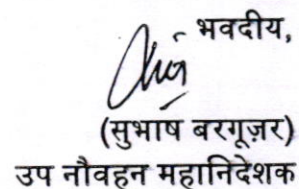 भवदीय,
(सुभाष बरगूज़र)
उप नौवहन महानिदेशक